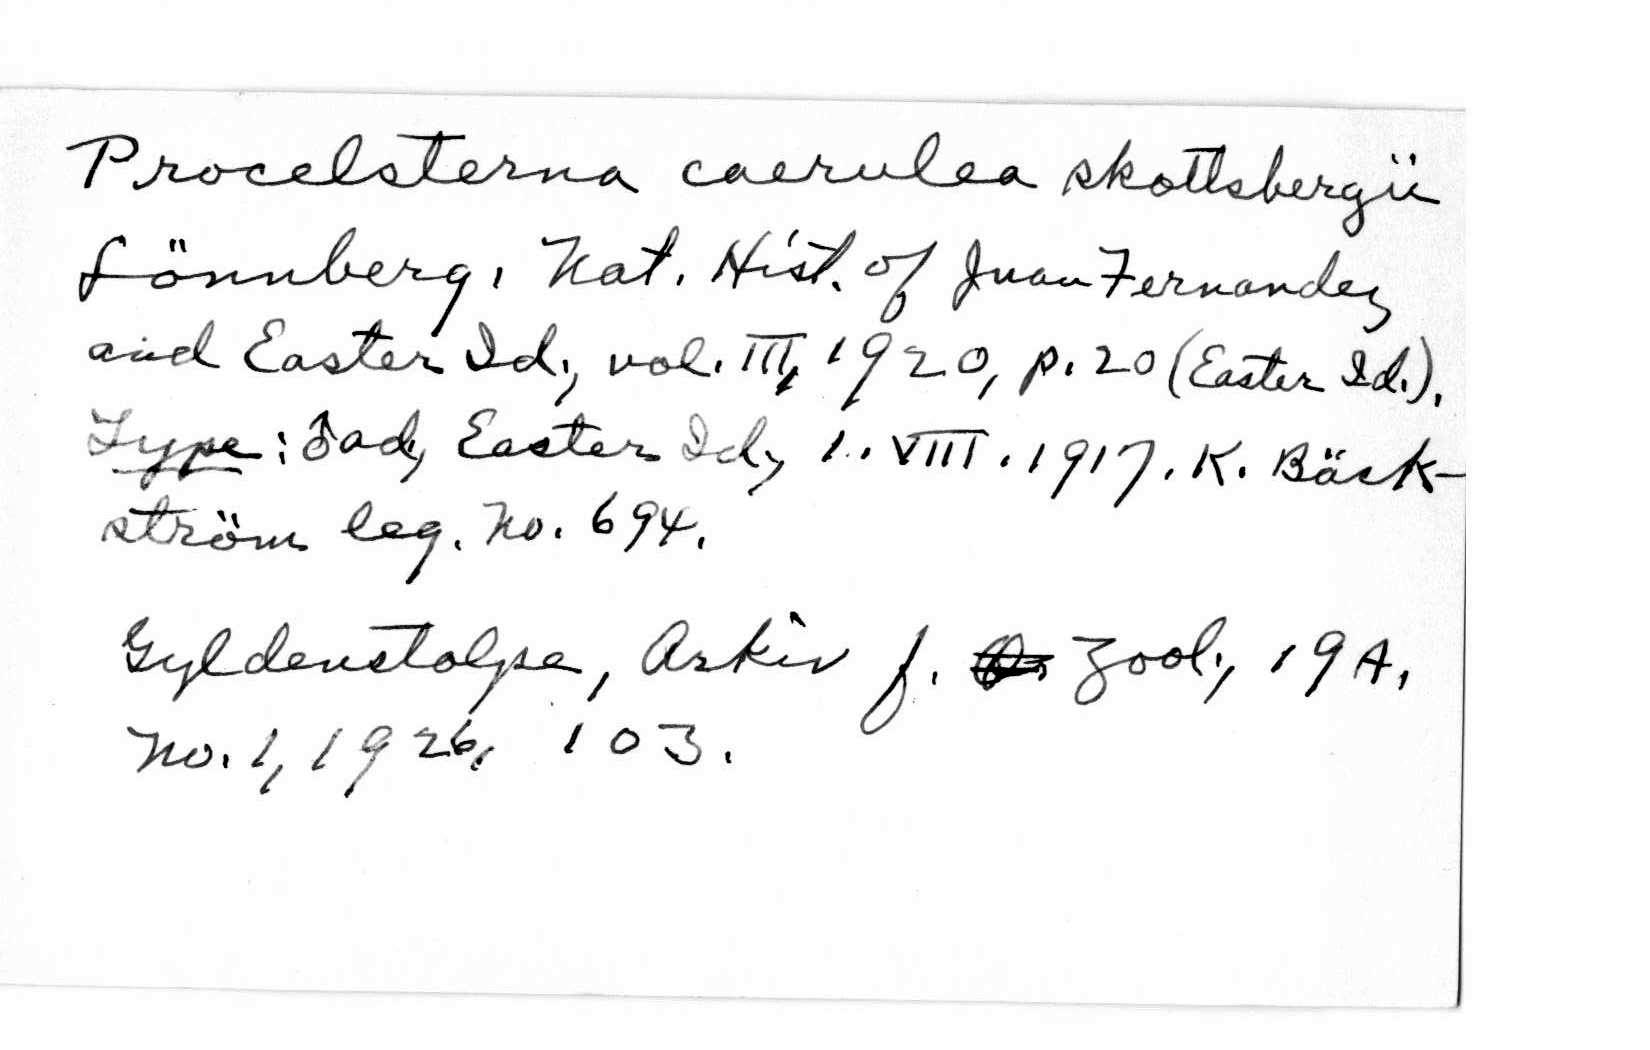 Procelsterna caerulea skottsbergii
Lönnberg, Nat. Hist. of Juan Fernandez
and Easter Id., vol. III, 1920, p. 20 (Easter Id.).
Type: ♂ ad, Easter Id, 1. VIII. 1917. K. Bäck-
ström leg. No. 694.
Gyldenstolpe, Arkiv f. Zool., 19A,
No. 1, 1926, 103.